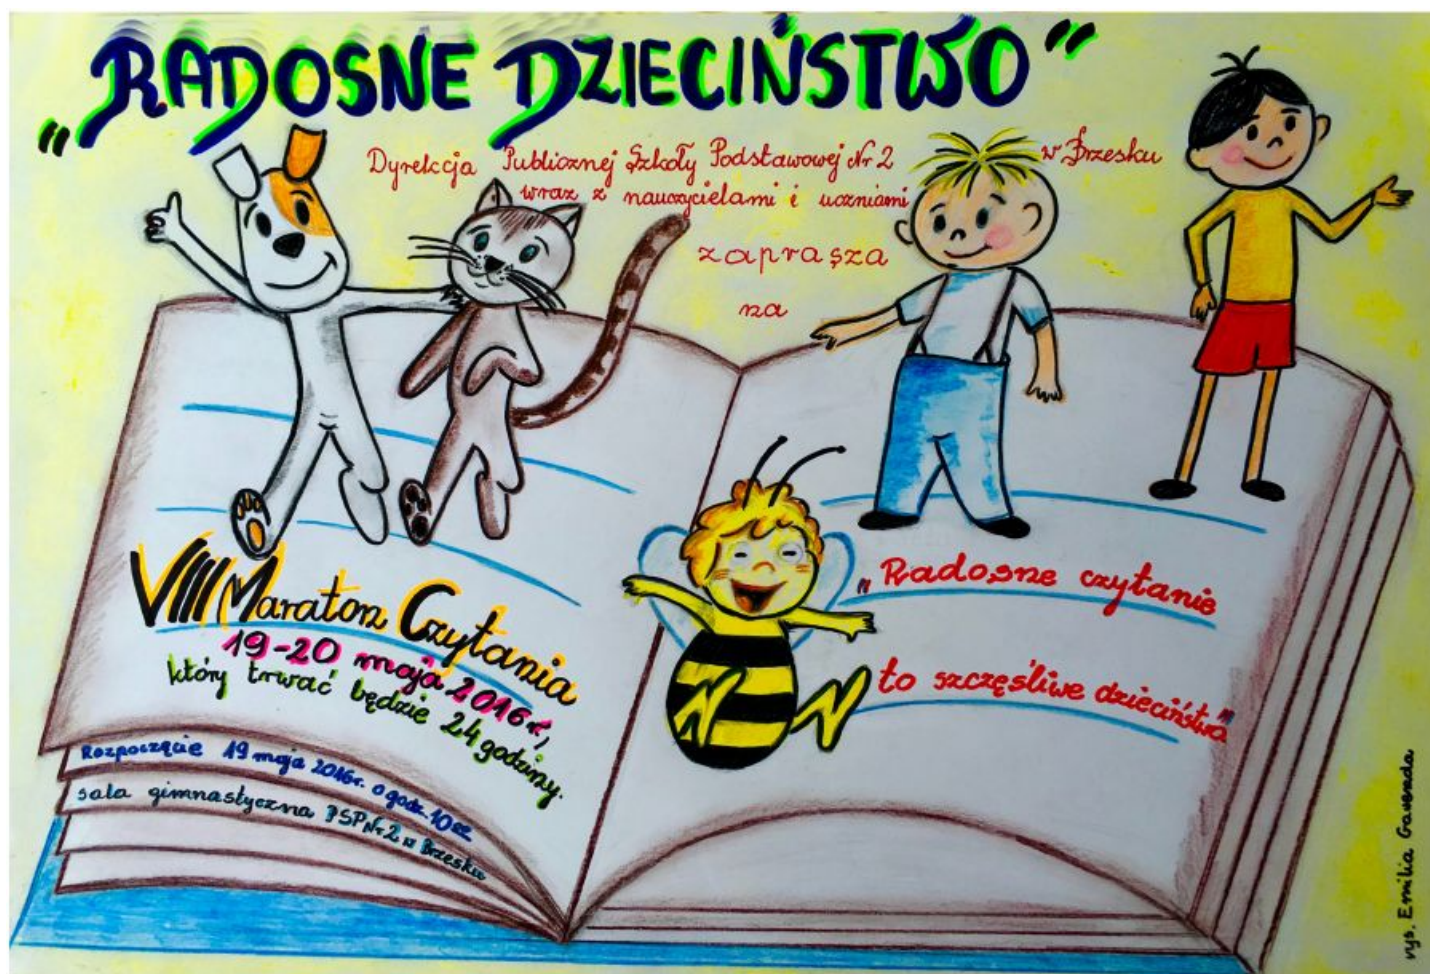 „RADOSNE DZIECIŃSTWO”
Dyrekcja Publicznej Szkoły Podstawowej Nr 2 w Brzesku
wraz z nauczycielami i uczniami
zaprasza
na
VIII Maraton Czytania
19-20 maja 2016 r.,
który trwać będzie 24 godziny.
Rozpoczęcie 19 maja 2016r. o godz. 10⁰⁰
sala gimnastyczna PSP Nr 2 w Brzesku
„Radosne czytanie
to szczęśliwe dzieciństwo”
rys. Emilia Gawenda